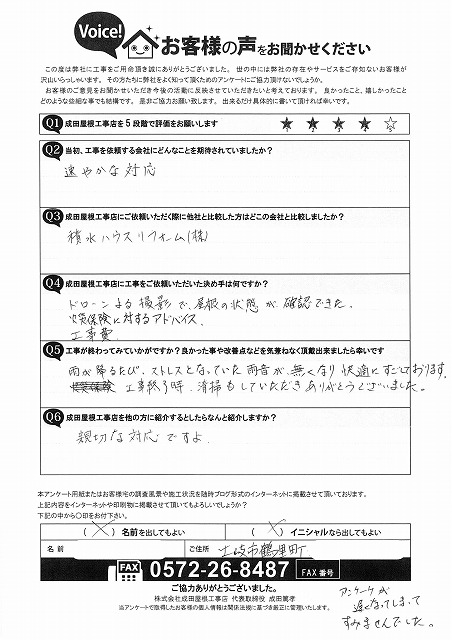 Voice!
お客様の声をお聞かせください
この度は弊社に工事をご用命頂き誠にありがとうございました。世の中には弊社の存在やサービスをご存知ないお客様が
沢山いらっしゃいます。その方たちに弊社をよく知って頂くためのアンケートにご協力頂けないでしょうか。
お客様のご意見をお聞かせいただき今後の活動に反映させていただきたいと考えております。良かったこと、嬉しかったこと
どのような些細な事でも結構です。是非ご協力お願い致します。出来るだけ具体的に書いて頂ければ幸いです。
Q1 成田屋根工事店を5段階で評価をお願いします ★ ★ ★ ★ ☆
Q2 当初、工事を依頼する会社にどんなことを期待されていましたか?
速やかな対応
Q3 成田屋根工事店にご依頼いただく際に他社と比較した方はどこの会社と比較しましたか?
積水ハウスリフォーム(株)
Q4 成田屋根工事店に工事をご依頼いただいた決め手は何ですか?
ドローンよる撮影で、屋根の状態が確認できた。
火災保険に対するアドバイス、
工事費
Q5 工事が終わってみていかがですか?良かった事や改善点などを気兼ねなく頂戴出来ましたら幸いです
雨が降るたび、ストレスとなっていた雨音が、無くなり快適にすごしております。
工事終了時、清掃もしていただきありがとうございました。
Q6 成田屋根工事店を他の方に紹介するとしたらなんと紹介しますか?
親切な対応ですよ
本アンケート用紙またはお客様宅の調査風景や施工状況を随時ブログ形式のインターネットに掲載させて頂いております。
上記内容をインターネットや印刷物に掲載させて頂いてもよろしいでしょうか?
下記の中から〇印をお付下さい。
( × )名前を出してもよい ( × )イニシャルなら出してもよい
名前 ご住所 土岐市鶴里町
FAX 0572-26-8487 FAX番号
ご協力ありがとうございました。
株式会社成田屋根工事店 代表取締役 成田篤孝
当アンケートで取得したお客様の個人情報は関係法規に基づき厳正に管理いたします。
アンケートが
遅くなってしまって
すみませんでした。